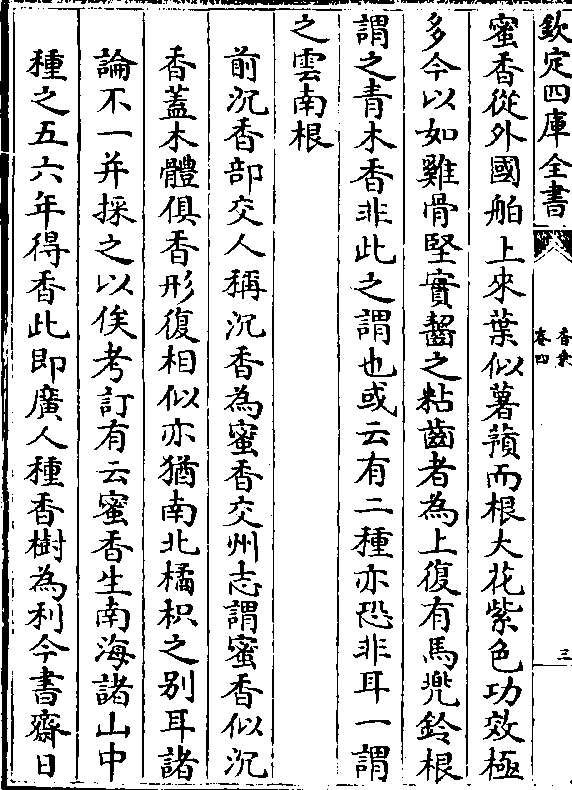 欽定四庫全書
香乘
卷四
三
蜜香從外國舶上來葉似薯蕷而根大花紫色功效極
多今以如雞骨堅實齧之粘齒者為上復有馬兜鈴根
謂之青木香非此之謂也或云有二種亦恐非耳一謂
之雲南根
前沉香部交人稱沉香為蜜香交州志謂蜜香似沉
香蓋木體俱香形復相似亦猶南北橘枳之别耳諸
論不一并採之以俟考訂有云蜜香生南海諸山中
種之五六年得香此即廣人種香樹為利今書齋日